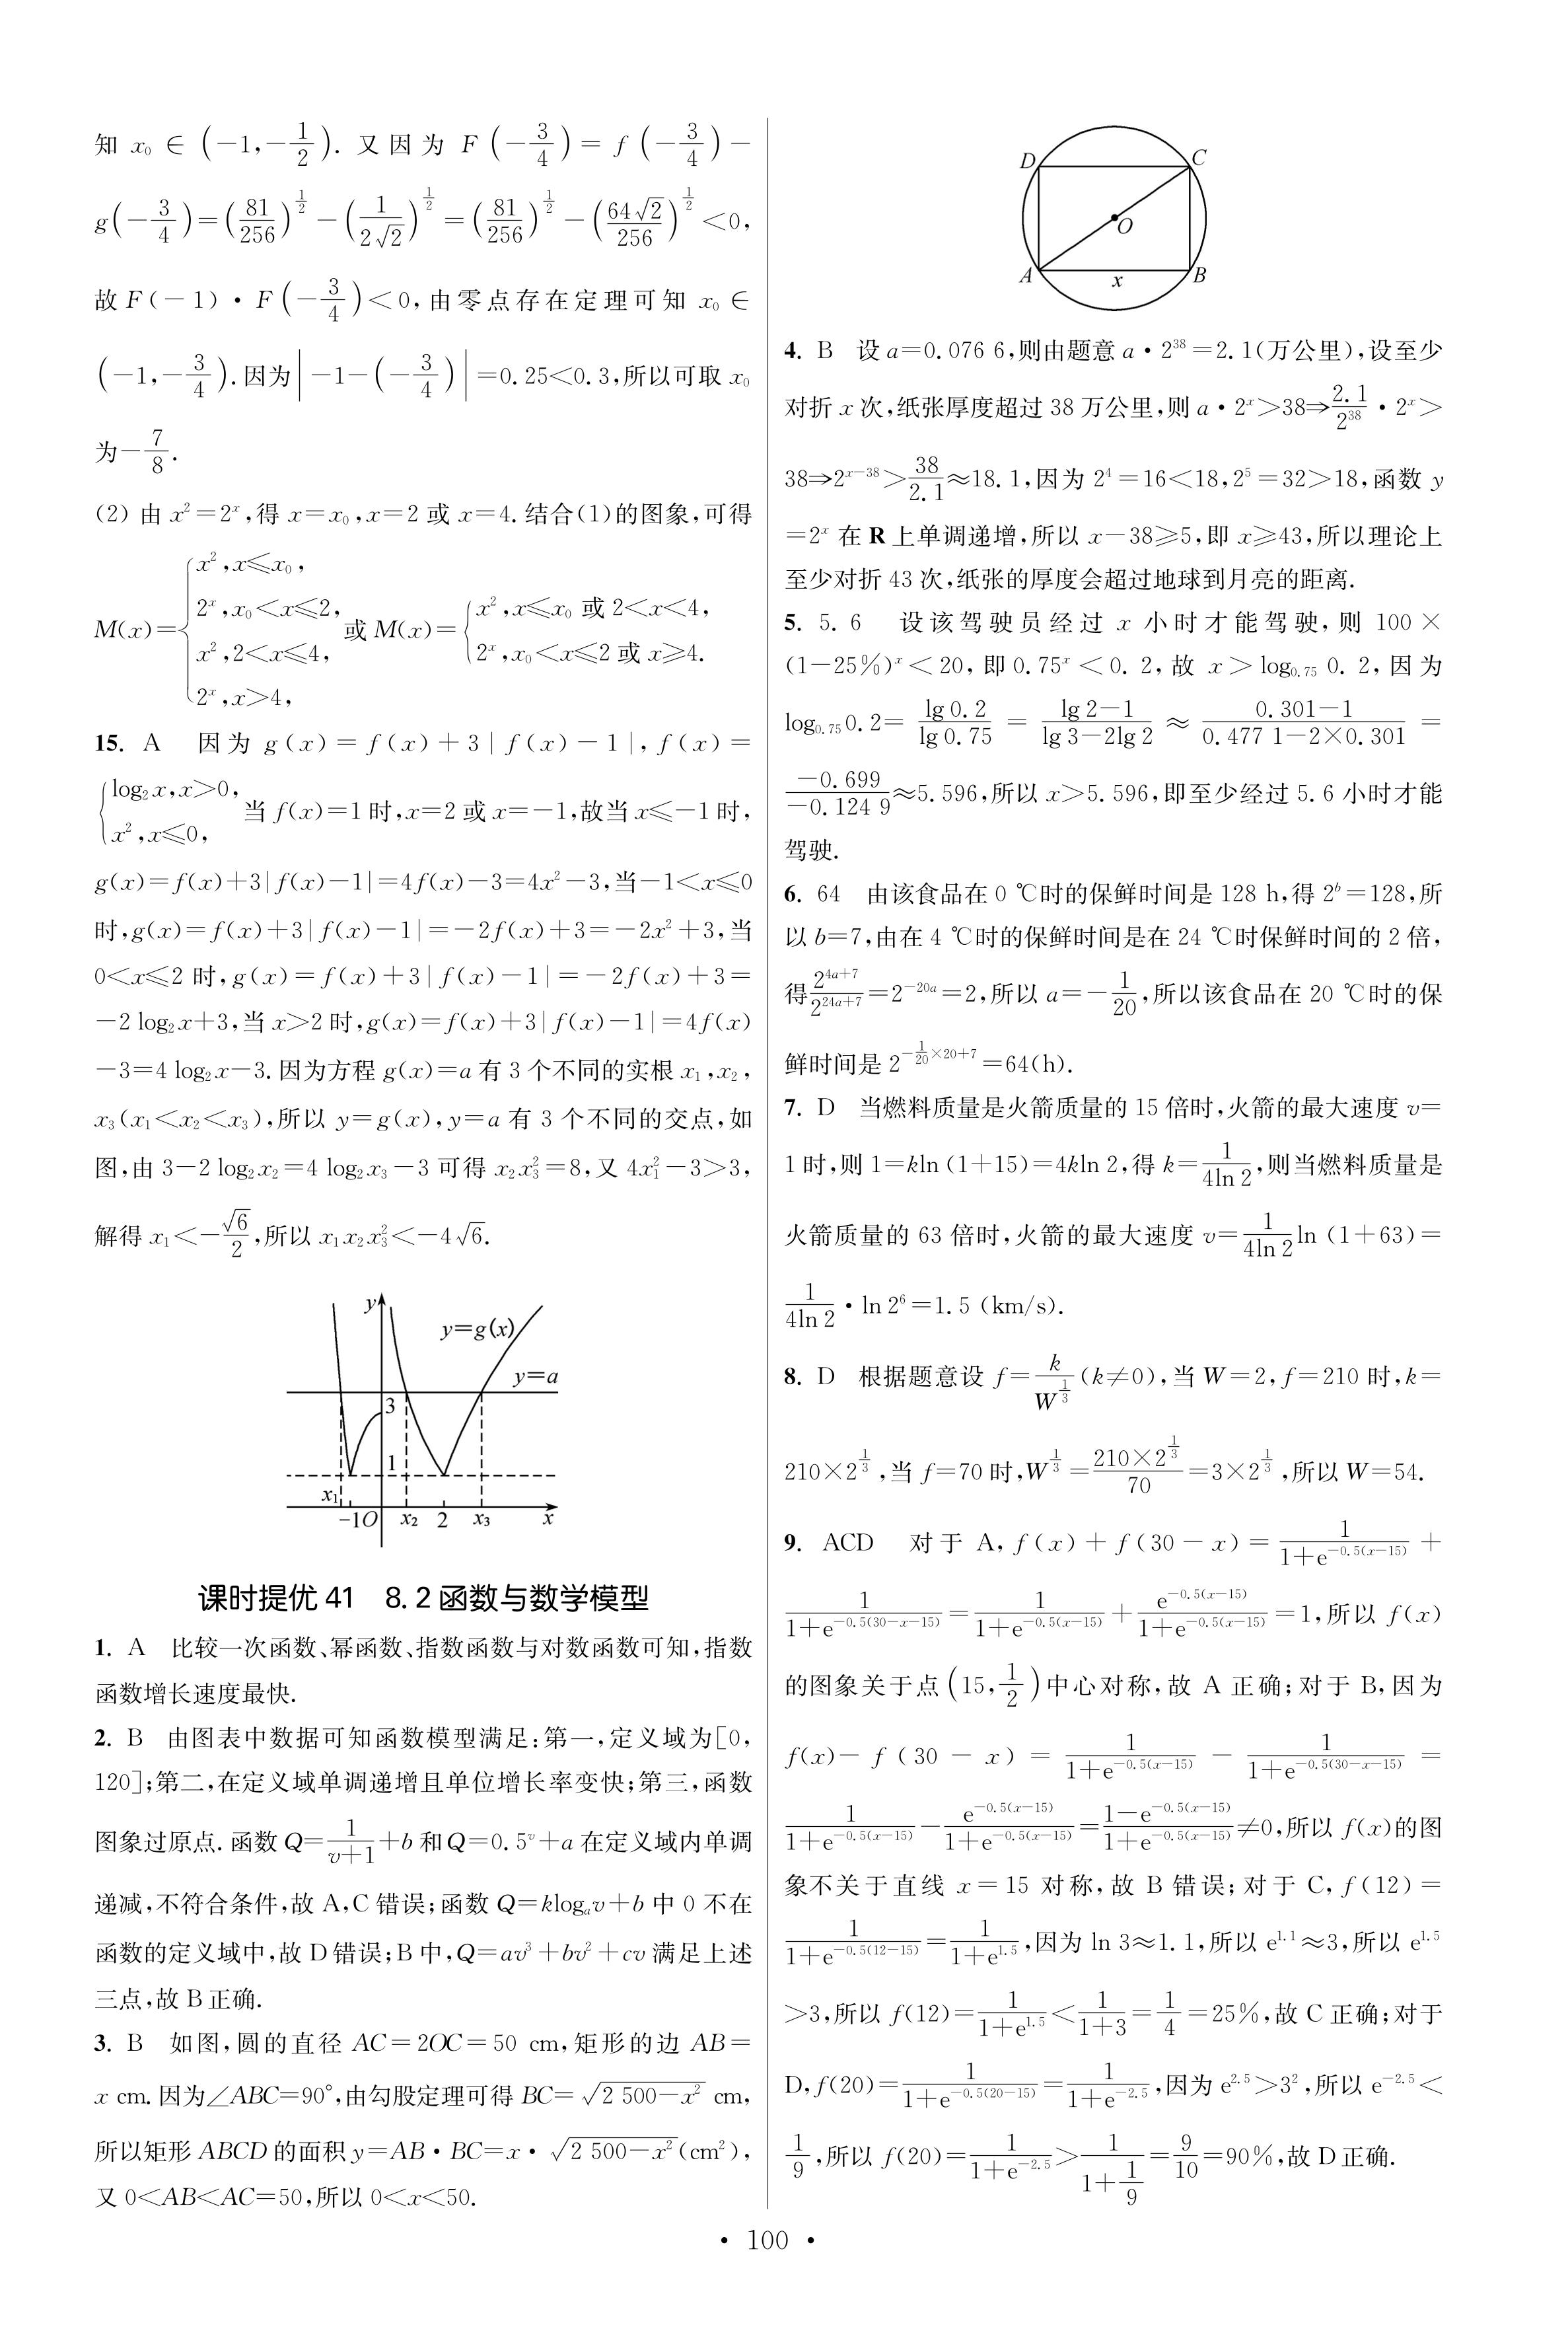 知 x₀ ∈ (−1,−1/2). 又因为 F(−3/4)=f(−3/4)−
g(−3/4)=(81/256)^(1/2)−(1/(2√2))^(1/2)=(81/256)^(1/2)−(64√2/256)^(1/2)<0,
故 F(−1)·F(−3/4)<0,由零点存在定理可知 x₀∈
(−1,−3/4).因为|−1−(−3/4)|=0.25<0.3,所以可取 x₀
为−7/8.
(2) 由 x²=2ˣ,得 x=x₀,x=2 或 x=4.结合(1)的图象,可得
M(x)={x²,x⩽x₀, 2ˣ,x₀<x⩽2, x²,2<x⩽4, 2ˣ,x>4, 或 M(x)={x²,x⩽x₀ 或 2<x<4, 2ˣ,x₀<x⩽2 或 x⩾4.
15. A 因为 g(x)=f(x)+3|f(x)−1|,f(x)=
{log₂x,x>0, x²,x⩽0, 当 f(x)=1 时,x=2 或 x=−1,故当 x⩽−1 时,
g(x)=f(x)+3|f(x)−1|=4f(x)−3=4x²−3,当−1<x⩽0
时,g(x)=f(x)+3|f(x)−1|=−2f(x)+3=−2x²+3,当
0<x⩽2 时,g(x)=f(x)+3|f(x)−1|=−2f(x)+3=
−2log₂x+3,当 x>2 时,g(x)=f(x)+3|f(x)−1|=4f(x)
−3=4log₂x−3.因为方程 g(x)=a 有 3 个不同的实根 x₁,x₂,
x₃(x₁<x₂<x₃),所以 y=g(x),y=a 有 3 个不同的交点,如
图,由 3−2log₂x₂=4log₂x₃−3 可得 x₂x₃²=8,又 4x₁²−3>3,
解得 x₁<−√6/2,所以 x₁x₂x₃²<−4√6.
y
y=g(x)
y=a
3
1
x₁
−1 O x₂ 2 x₃ x
课时提优 41 8.2 函数与数学模型
1. A 比较一次函数、幂函数、指数函数与对数函数可知,指数
函数增长速度最快.
2. B 由图表中数据可知函数模型满足:第一,定义域为[0,
120];第二,在定义域单调递增且单位增长率变快;第三,函数
图象过原点.函数 Q=1/(v+1)+b 和 Q=0.5ᵛ+a 在定义域内单调
递减,不符合条件,故 A,C 错误;函数 Q=klogₐv+b 中 0 不在
函数的定义域中,故 D 错误;B 中,Q=av³+bv²+cv 满足上述
三点,故 B 正确.
3. B 如图,圆的直径 AC=2OC=50 cm,矩形的边 AB=
x cm.因为∠ABC=90°,由勾股定理可得 BC=√(2 500−x²) cm,
所以矩形 ABCD 的面积 y=AB·BC=x·√(2 500−x²)(cm²),
又 0<AB<AC=50,所以 0<x<50.
D C
O
A x B
4. B 设 a=0.076 6,则由题意 a·2³⁸=2.1(万公里),设至少
对折 x 次,纸张厚度超过 38 万公里,则 a·2ˣ>38⇒2.1/2³⁸·2ˣ>
38⇒2ˣ⁻³⁸>38/2.1≈18.1,因为 2⁴=16<18,2⁵=32>18,函数 y
=2ˣ 在 R 上单调递增,所以 x−38⩾5,即 x⩾43,所以理论上
至少对折 43 次,纸张的厚度会超过地球到月亮的距离.
5. 5.6 设该驾驶员经过 x 小时才能驾驶,则 100×
(1−25%)ˣ<20,即 0.75ˣ<0.2,故 x>log₀.₇₅0.2,因为
log₀.₇₅0.2=lg 0.2/lg 0.75=(lg 2−1)/(lg 3−2lg 2)≈(0.301−1)/(0.477 1−2×0.301)=
−0.699/−0.124 9≈5.596,所以 x>5.596,即至少经过 5.6 小时才能
驾驶.
6. 64 由该食品在 0 ℃时的保鲜时间是 128 h,得 2ᵇ=128,所
以 b=7,由在 4 ℃时的保鲜时间是在 24 ℃时保鲜时间的 2 倍,
得 2^(4a+7)/2^(24a+7)=2^(−20a)=2,所以 a=−1/20,所以该食品在 20 ℃时的保
鲜时间是 2^(−1/20×20+7)=64(h).
7. D 当燃料质量是火箭质量的 15 倍时,火箭的最大速度 v=
1 时,则 1=kln(1+15)=4kln 2,得 k=1/(4ln 2),则当燃料质量是
火箭质量的 63 倍时,火箭的最大速度 v=1/(4ln 2)ln(1+63)=
1/(4ln 2)·ln 2⁶=1.5 (km/s).
8. D 根据题意设 f=k/W^(1/3)(k≠0),当 W=2,f=210 时,k=
210×2^(1/3),当 f=70 时,W^(1/3)=(210×2^(1/3))/70=3×2^(1/3),所以 W=54.
9. ACD 对于 A,f(x)+f(30−x)=1/(1+e^(−0.5(x−15)))+
1/(1+e^(−0.5(30−x−15)))=1/(1+e^(−0.5(x−15)))+e^(−0.5(x−15))/(1+e^(−0.5(x−15)))=1,所以 f(x)
的图象关于点(15,1/2)中心对称,故 A 正确;对于 B,因为
f(x)−f(30−x)=1/(1+e^(−0.5(x−15)))−1/(1+e^(−0.5(30−x−15)))=
1/(1+e^(−0.5(x−15)))−e^(−0.5(x−15))/(1+e^(−0.5(x−15)))=(1−e^(−0.5(x−15)))/(1+e^(−0.5(x−15)))≠0,所以 f(x)的图
象不关于直线 x=15 对称,故 B 错误;对于 C,f(12)=
1/(1+e^(−0.5(12−15)))=1/(1+e^1.5),因为 ln 3≈1.1,所以 e^1.1≈3,所以 e^1.5
>3,所以 f(12)=1/(1+e^1.5)<1/(1+3)=1/4=25%,故 C 正确;对于
D,f(20)=1/(1+e^(−0.5(20−15)))=1/(1+e^(−2.5)),因为 e^2.5>3²,所以 e^(−2.5)<
1/9,所以 f(20)=1/(1+e^(−2.5))>1/(1+1/9)=9/10=90%,故 D 正确.
· 100 ·